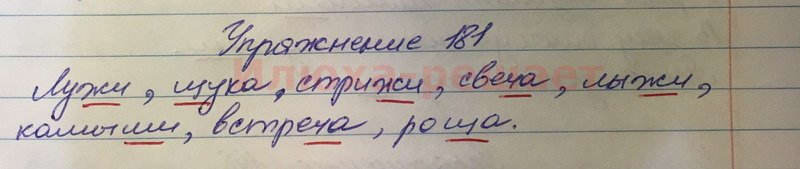 Упражнение 181
Илюха решает
Лужи, щука, стрижи, свеча, лыжи,
камыши, встреча, роща.